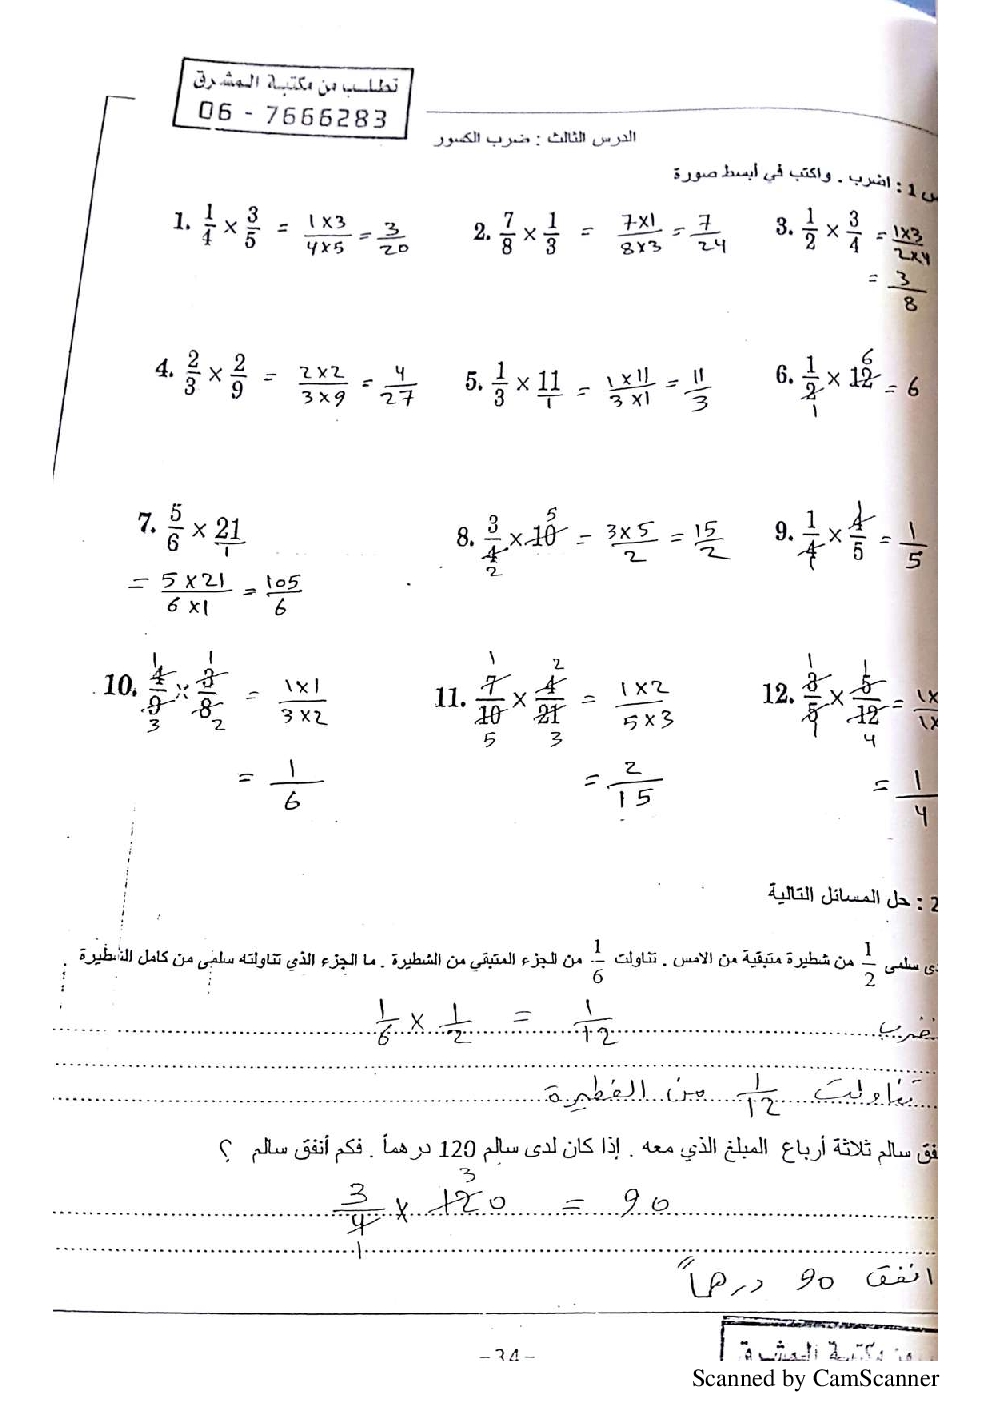 تطلب من مكتبة المشرق
06 - 7666283
الدرس الثالث : ضرب الكسور
س 1 : اضرب . واكتب في أبسط صورة
1. 1/4 × 3/5 = 1×3/4×5 = 3/20 2. 7/8 × 1/3 = 7×1/8×3 = 7/24 3. 1/2 × 3/4 = 1×3/2×4
= 3/8
4. 2/3 × 2/9 = 2×2/3×9 = 4/27 5. 1/3 × 11/1 = 1×11/3×1 = 11/3 6. 1/2 × 12 = 6
6
1
7. 5/6 × 21/1 8. 3/4 × 10 = 3×5/2 = 15/2 9. 1/4 × 4/5 = 1/5
5
2
= 5×21/6×1 = 105/6
1 1 1 2 1 1
10. 4/9 × 3/8 = 1×1/3×2 11. 7/10 × 4/21 = 1×2/5×3 12. 3/5 × 5/12 = 1×/1×
3 2 5 3 1 4
= 1/6 = 2/15 = 1/4
2 : حل المسائل التالية
دى سلمى 1/2 من شطيرة متبقية من الامس . تناولت 1/6 من الجزء المتبقي من الشطيرة . ما الجزء الذي تناولته سلمى من كامل الشطيرة .
ضرب 1/6 × 1/2 = 1/12
تناولت 1/12 من الفطيرة
فق سالم ثلاثة أرباع المبلغ الذي معه . إذا كان لدى سالم 120 درهماً . فكم أنفق سالم ؟
3
3/4 × 120 = 90
1
انفق 90 درهماً
-34-
من مكتبة المشرق
Scanned by CamScanner